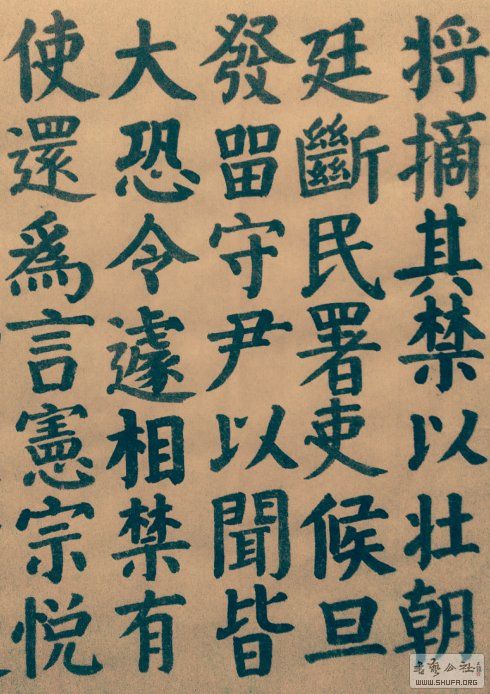 将摘其禁以壮朝
廷斷民署吏候旦
發留守尹以聞皆
大恐令遽相禁有
使還為言憲宗悅
WWW.SHUFA.ORG